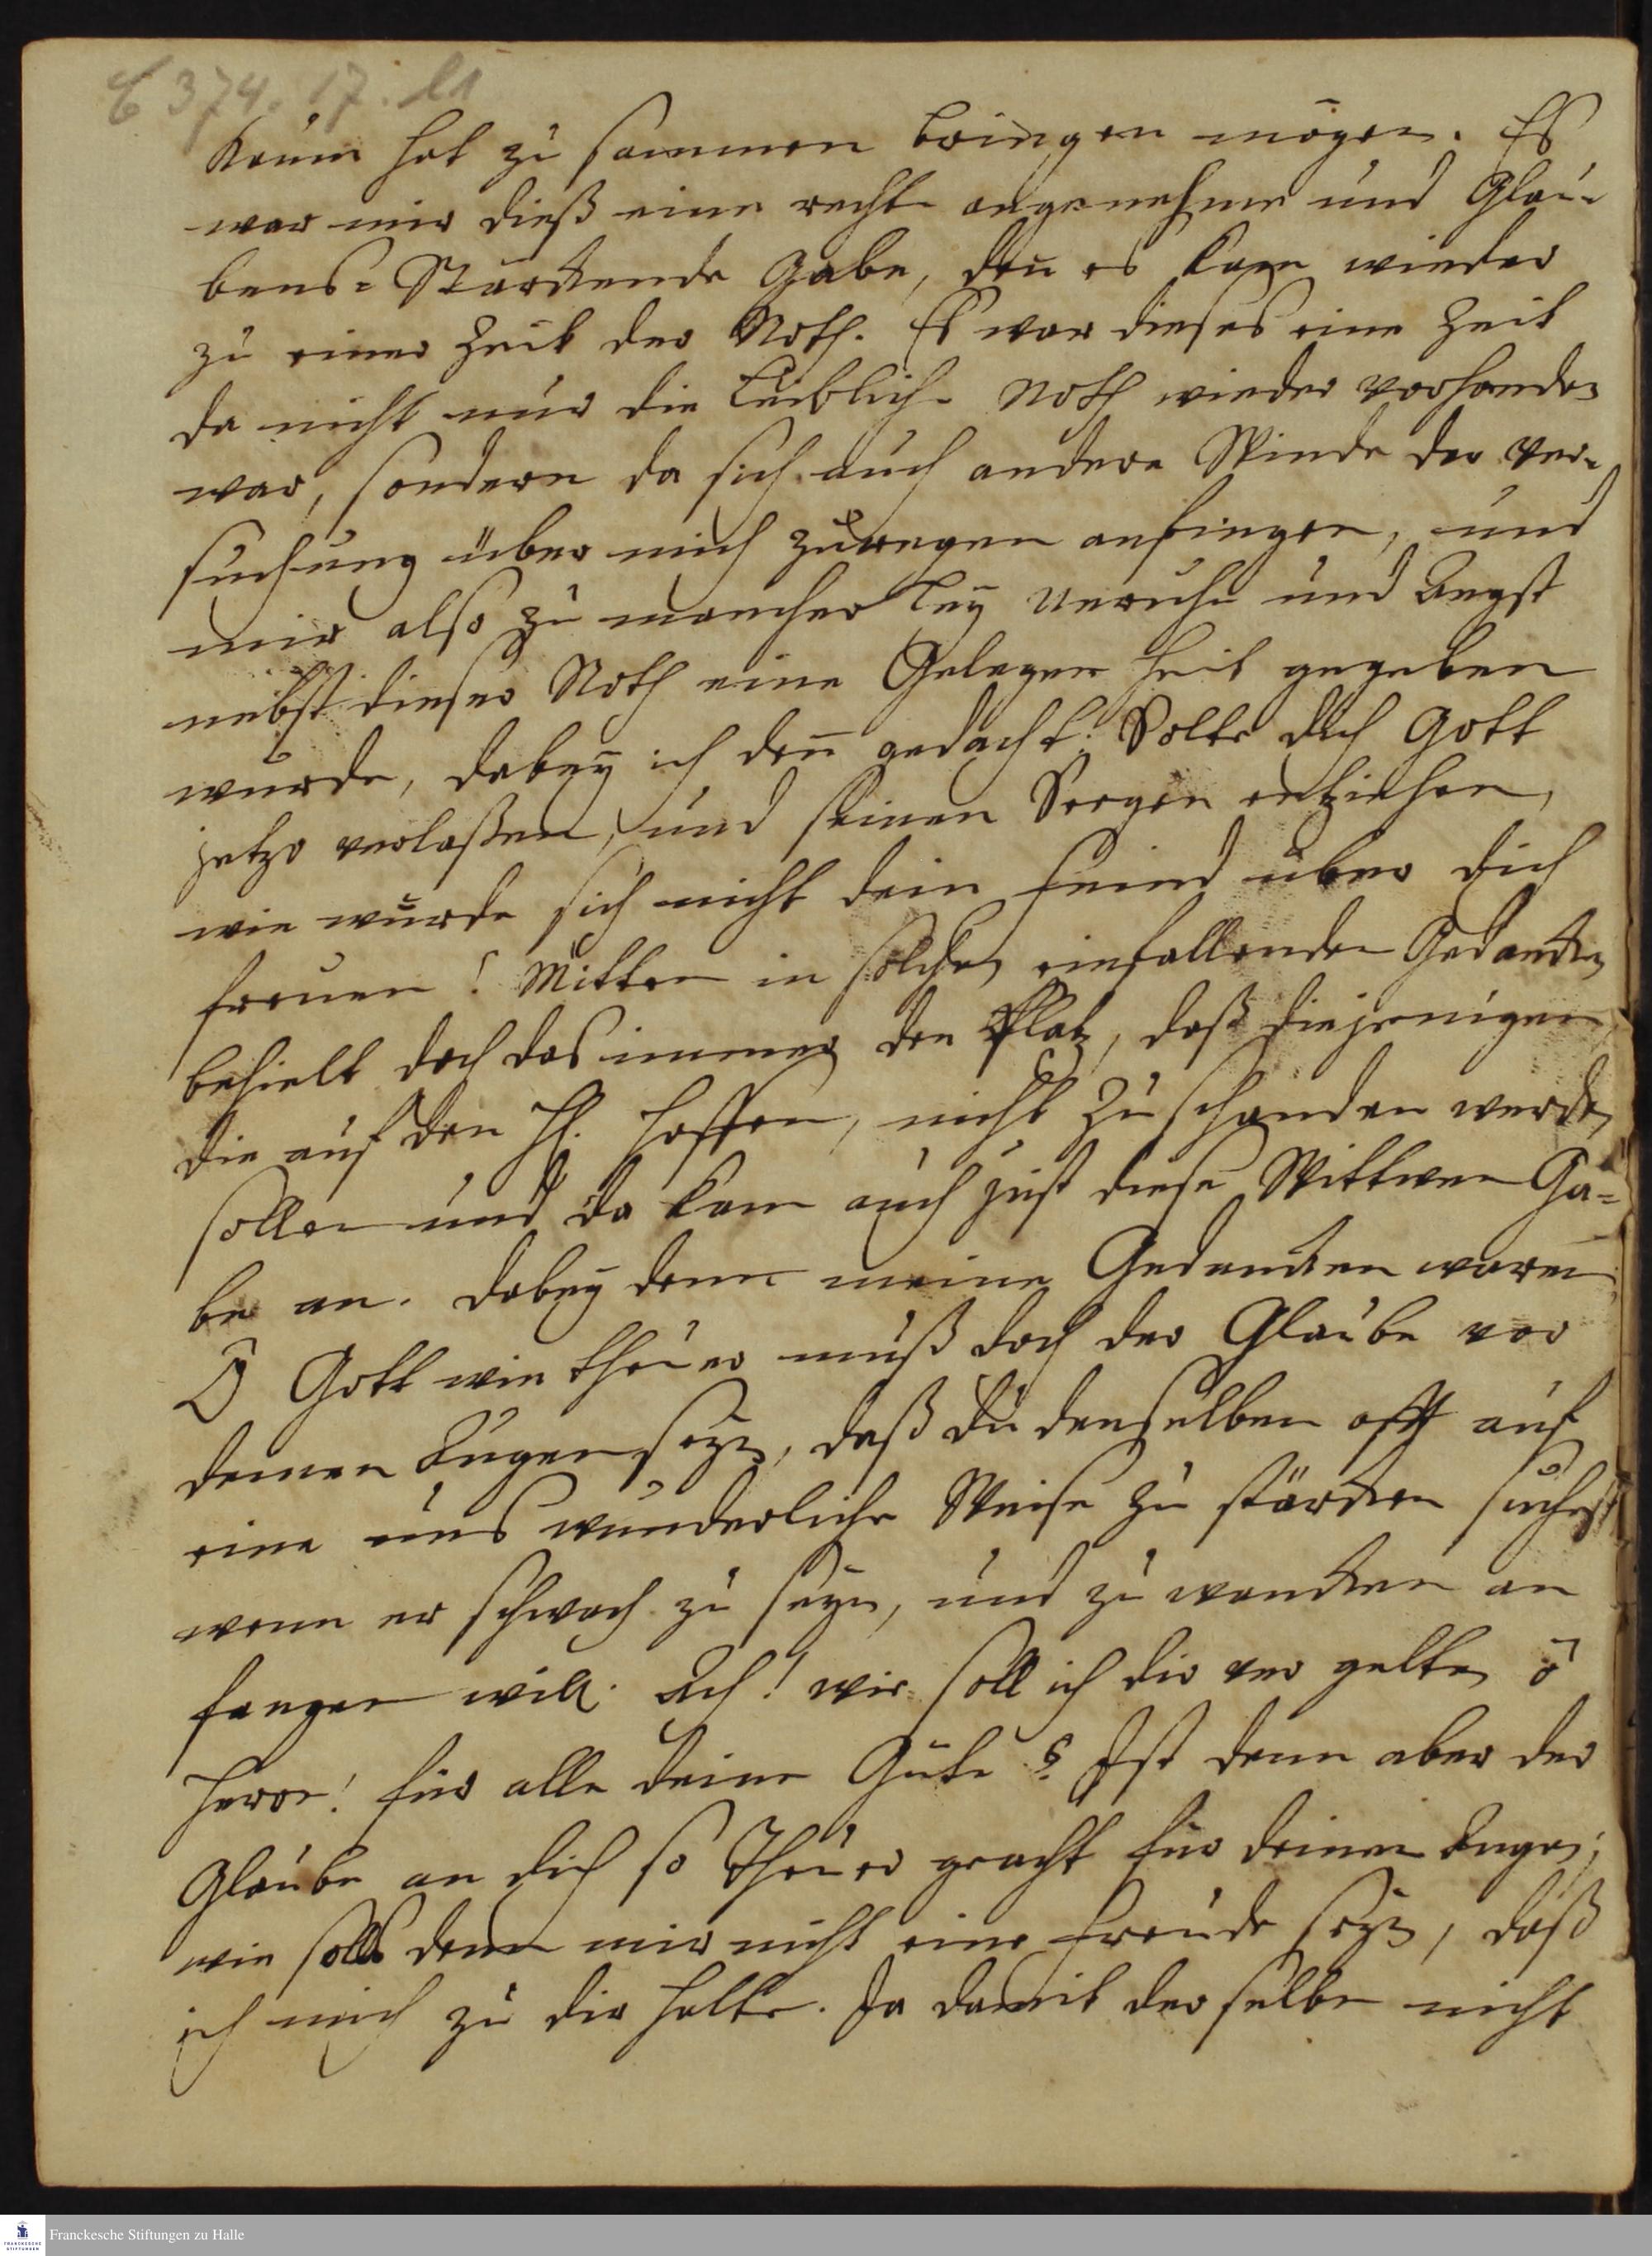 C 374. 17. 21
kaum hat zu sammen bringen mögen. Es
war mir dieß eine rechte angenehme und Glau-
bens-Stärckende Gabe, deñ es kam wieder
zu einer Zeit der Noth. Es war dieses eine Zeit
da nicht nur die leibliche Noth wieder vorhanden
war, sondern da sich auch andere Winde der Ver-
suchung über mich zu regen anfingen, und
mir also zu mancher ley Unruhe und Angst
nebst dieser Noth eine Gelegen heit gegeben
wurde, dabey ich deñ gedacht: Solte dich Gott
jetzo verlaßen, und seinen Seegen entziehen,
wie würde sich nicht dein Feind über dich
freuen! Mitten in solchen einfallenden Gedancken
behielt doch das immer den Platz, daß diejenigen
die auf den H. hoffen, nicht zu schanden werden
sollen und da kam auch just diese Wittwen Ga-
be an. Dabey denn meine Gedancken waren
O Gott wie theuer muß doch der Glaube vor
deinen Augen seyn, daß du denselben offt auf
eine uns wunderliche Weise zu stärcken suchest
wenn er schwach zu seyn, und zu wancken an
fangen will. Ach! wie soll ich dir ver gelten ô
Herr! für alle deine Güte? Ist denn aber der
Glaube an dich so theuer geacht für deinen Augen;
wie solls denn mir nicht eine Freude seyn, daß
ich mich zu dir halte. Ja damit der selbe nicht
Franckesche Stiftungen zu Halle
FRANCKESCHE STIFTUNGEN